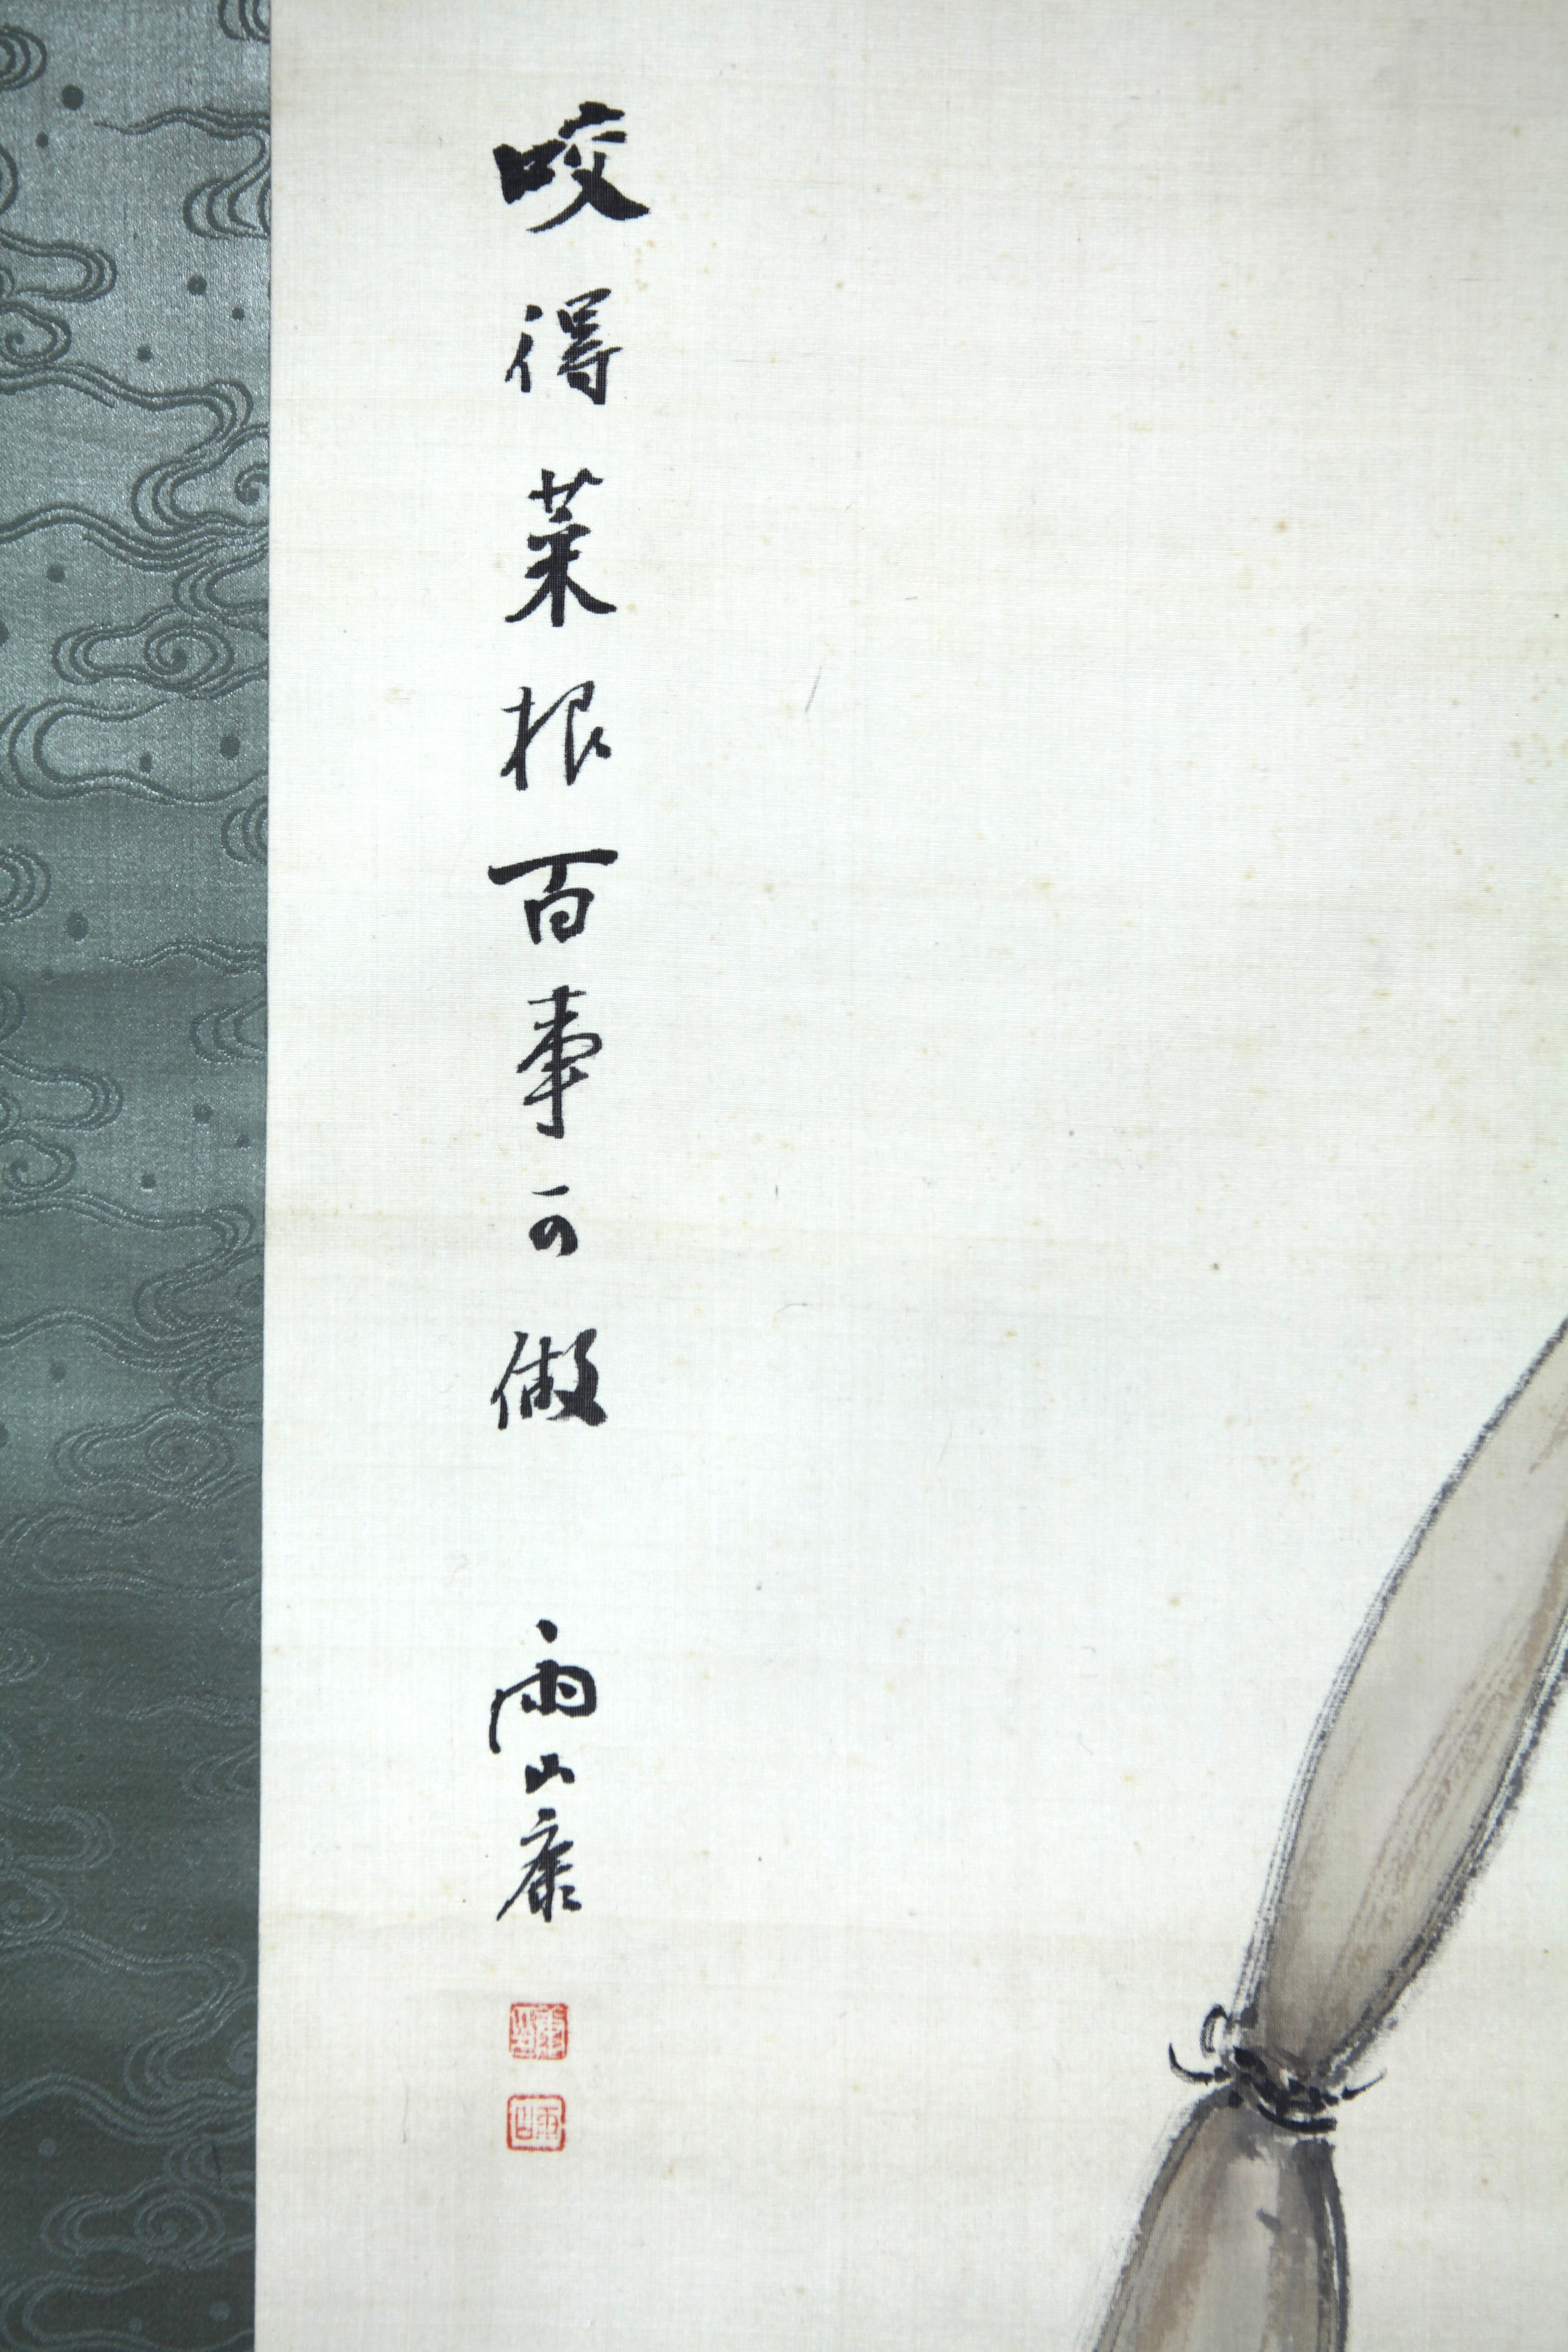 咬得菜根百事可做
雨山康